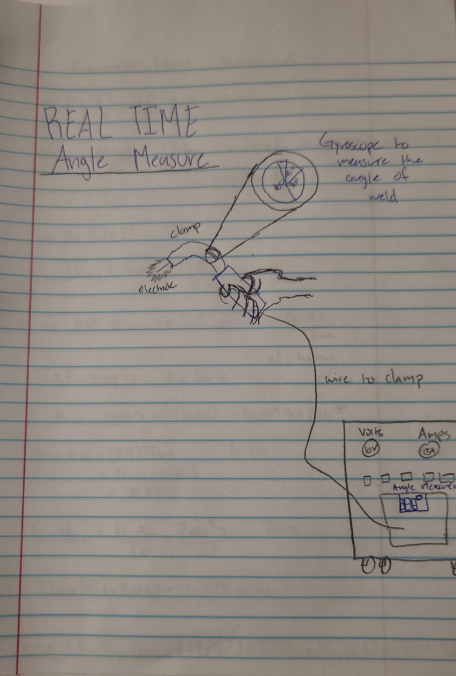 REAL TIME
Angle Measure
Gyroscope to
measure the
angle of
weld
clamp
electrode
wire to clamp
Volts
Amps
10V
Angle Measure